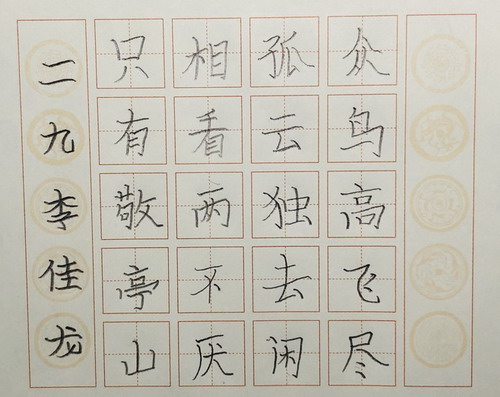 众鸟高飞尽
孤云独去闲
相看两不厌
只有敬亭山
二九李佳龙